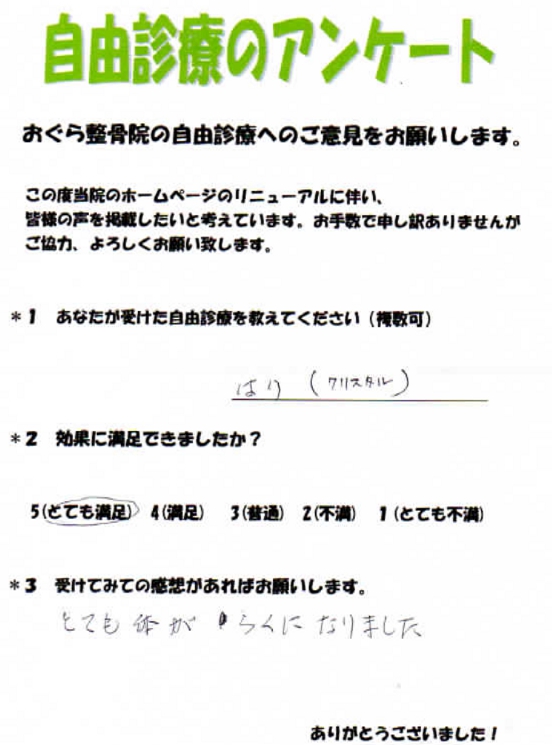 自由診療のアンケート
おぐら整骨院の自由診療へのご意見をお願いします。
この度当院のホームページのリニューアルに伴い、
皆様の声を掲載したいと考えています。お手数で申し訳ありませんが
ご協力、よろしくお願い致します。
*1 あなたが受けた自由診療を教えてください(複数可)
はり (クリスタル)
*2 効果に満足できましたか?
5(とても満足) 4(満足) 3(普通) 2(不満) 1(とても不満)
*3 受けてみての感想があればお願いします。
とても体が らくになりました
ありがとうございました!